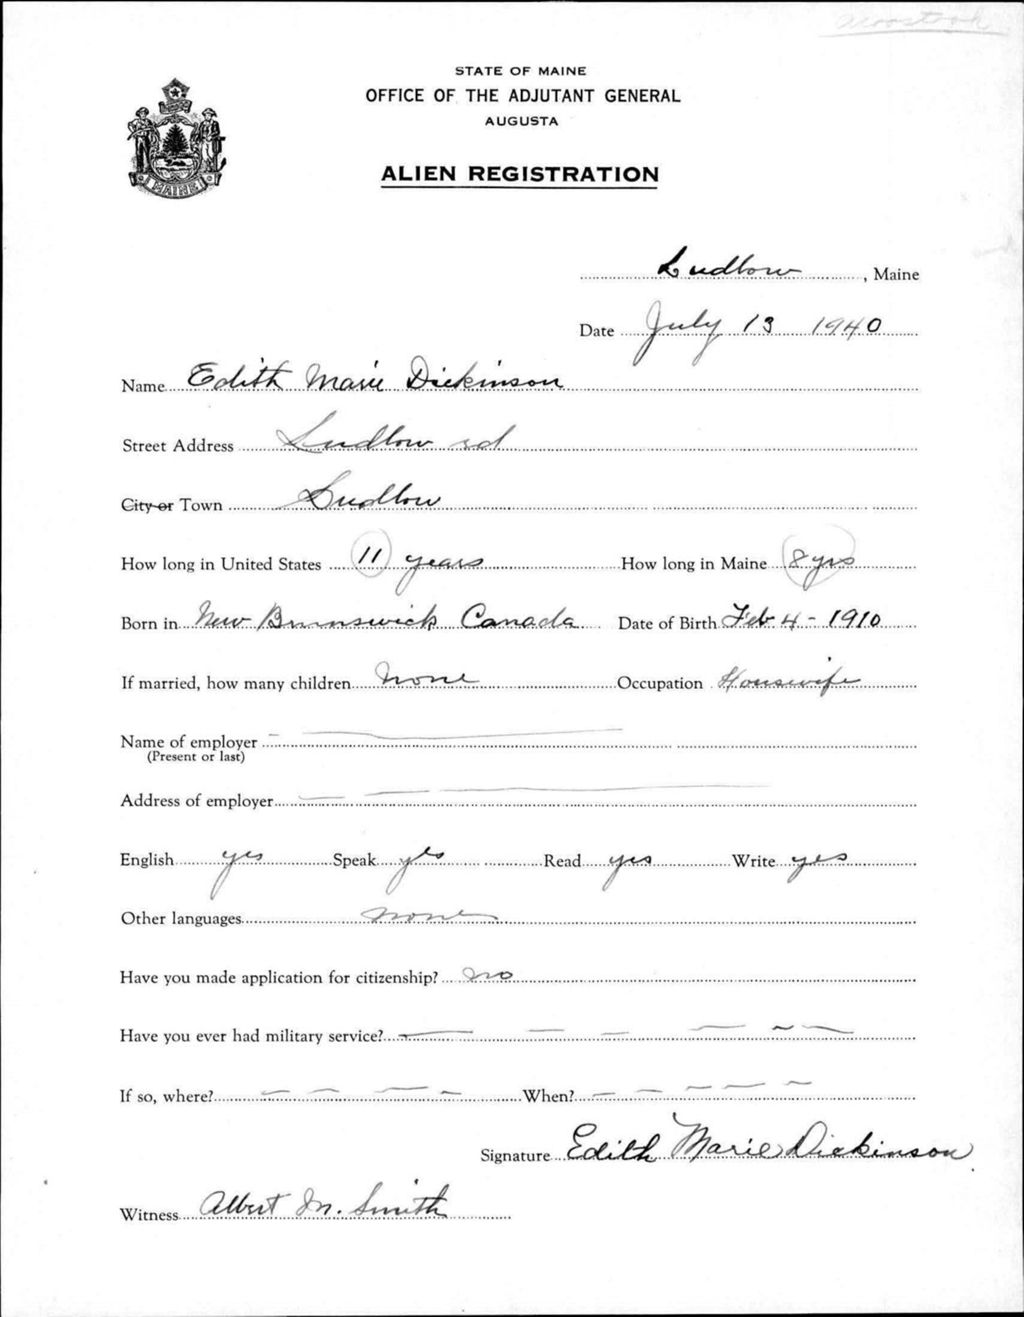 Aroostook
STATE OF MAINE
OFFICE OF THE ADJUTANT GENERAL
AUGUSTA
ALIEN REGISTRATION
MAINE
Ludlow, Maine
Date July 13 1940
Name Edith Marie Dickinson
Street Address Ludlow rd
City or Town Ludlow
How long in United States 11 years How long in Maine 8 yrs
Born in New Brunswick Canada Date of Birth Feb 4 - 1910
If married, how many children None Occupation Housewife
Name of employer
(Present or last)
Address of employer
English yes Speak yes Read yes Write yes
Other languages none
Have you made application for citizenship? no
Have you ever had military service?
If so, where? When?
Signature Edith Marie Dickinson
Witness Albert M. Smith